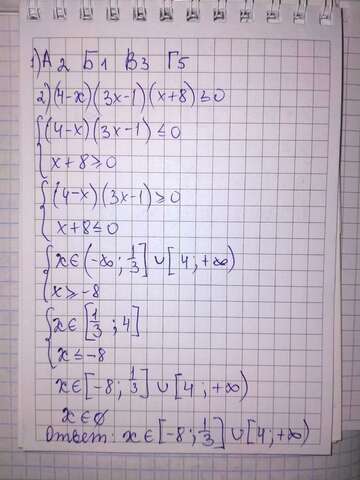 1) А 2 Б 1 В 3 Г 5
2) (4-x)(3x-1)(x+8) ≤ 0
{ (4-x)(3x-1) ≤ 0
x+8 ≥ 0
{ (4-x)(3x-1) ≥ 0
x+8 ≤ 0
{ x ∈ (-∞; 1/3] ∪ [4; +∞)
x ≥ -8
{ x ∈ [1/3; 4]
x ≤ -8
x ∈ [-8; 1/3] ∪ [4; +∞)
x ∈ ∅
Ответ: x ∈ [-8; 1/3] ∪ [4; +∞)